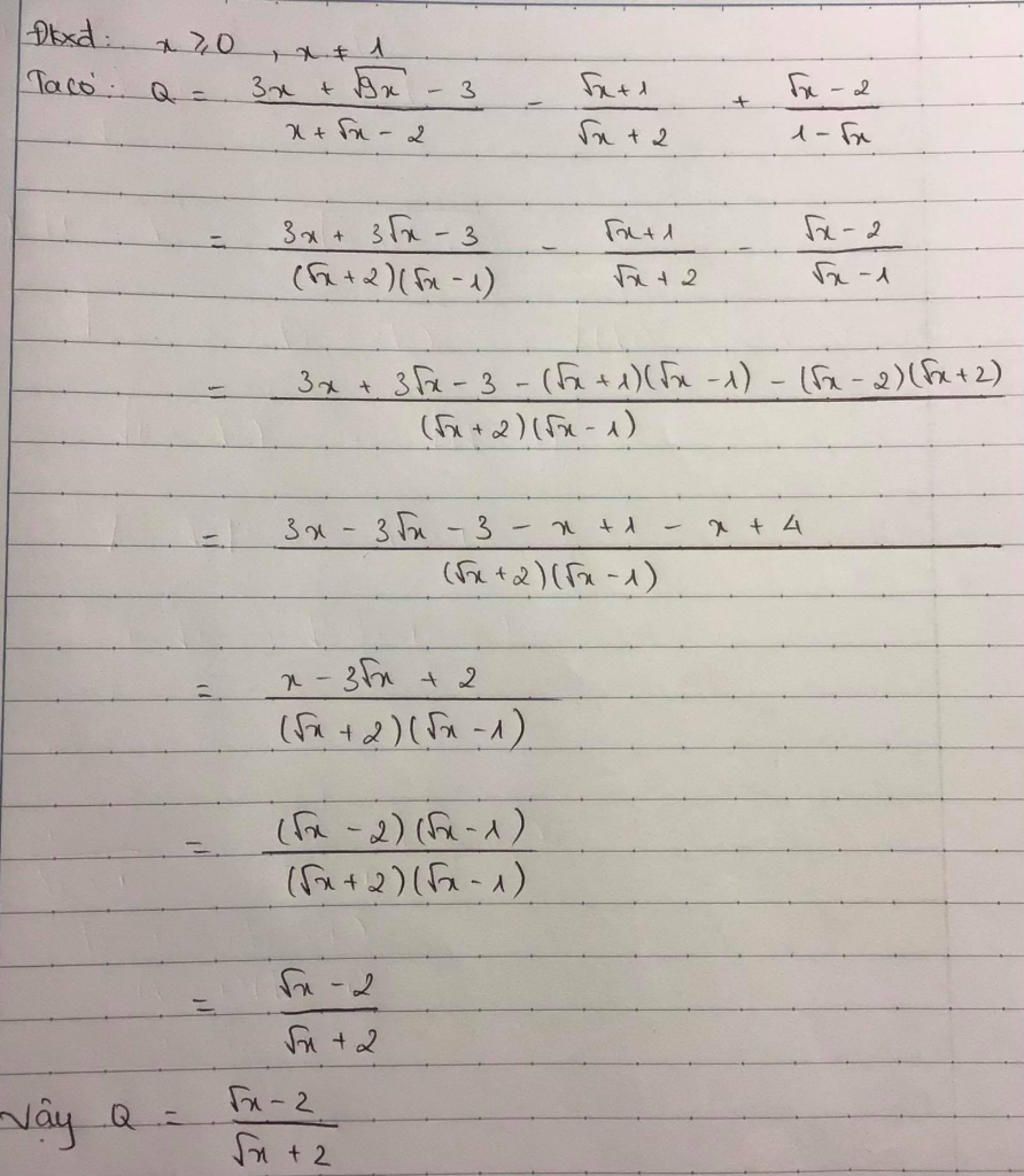 Đkxđ: x ≥ 0, x ≠ 1
Ta có: Q = (3x + √9x - 3)/(x + √x - 2) - (√x + 1)/(√x + 2) + (√x - 2)/(1 - √x)
= (3x + 3√x - 3)/((√x + 2)(√x - 1)) - (√x + 1)/(√x + 2) - (√x - 2)/(√x - 1)
= (3x + 3√x - 3 - (√x + 1)(√x - 1) - (√x - 2)(√x + 2))/((√x + 2)(√x - 1))
= (3x - 3√x - 3 - x + 1 - x + 4)/((√x + 2)(√x - 1))
= (x - 3√x + 2)/((√x + 2)(√x - 1))
= ((√x - 2)(√x - 1))/((√x + 2)(√x - 1))
= (√x - 2)/(√x + 2)
Vậy Q = (√x - 2)/(√x + 2)